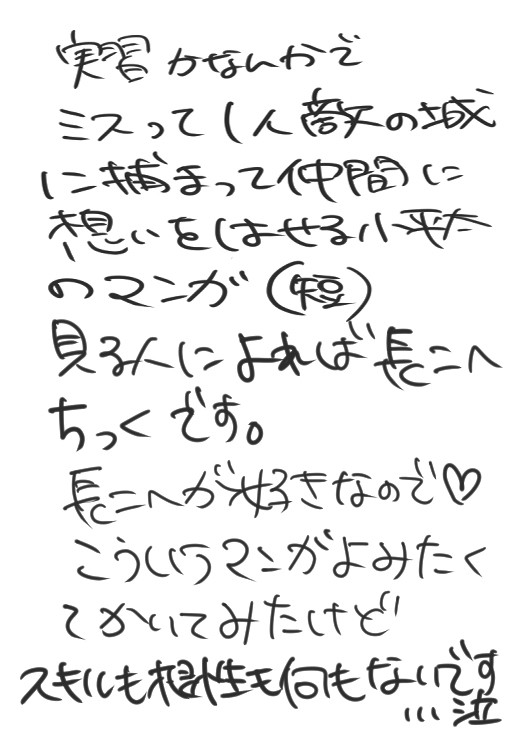 実習かなんかで
ミスって1人敵の城
に捕まって仲間に
想いをはせる小平太
のマンガ(短)
見る人によれば長こへ
ちっくです。
長こへが好きなので♡
こういうマンガよみたく
てかいてみたけど
スキルも根性も何もないです
…泣